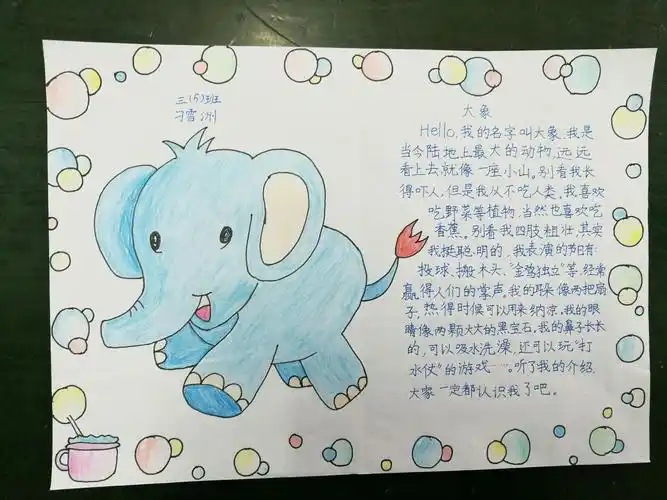 三(5)班
刁雪洲
大象
Hello,我的名字叫大象,我是
当今陆地上最大的动物,远远
看上去就像一座小山。别看我长
得吓人,但是我从不吃人类。我喜欢
吃野菜等植物,当然也喜欢吃
香蕉。别看我四肢粗壮,其实
我挺聪明的,我表演的节目有:
投球、搬木头、"金鸡独立"等,经常
赢得人们的掌声。我的耳朵像两把扇
子,热得时候可以用来纳凉。我的眼
睛像两颗大大的黑宝石。我的鼻子长长
的,可以吸水洗澡,还可以玩"打
水仗"的游戏……。听了我的介绍,
大家一定都认识我了吧。